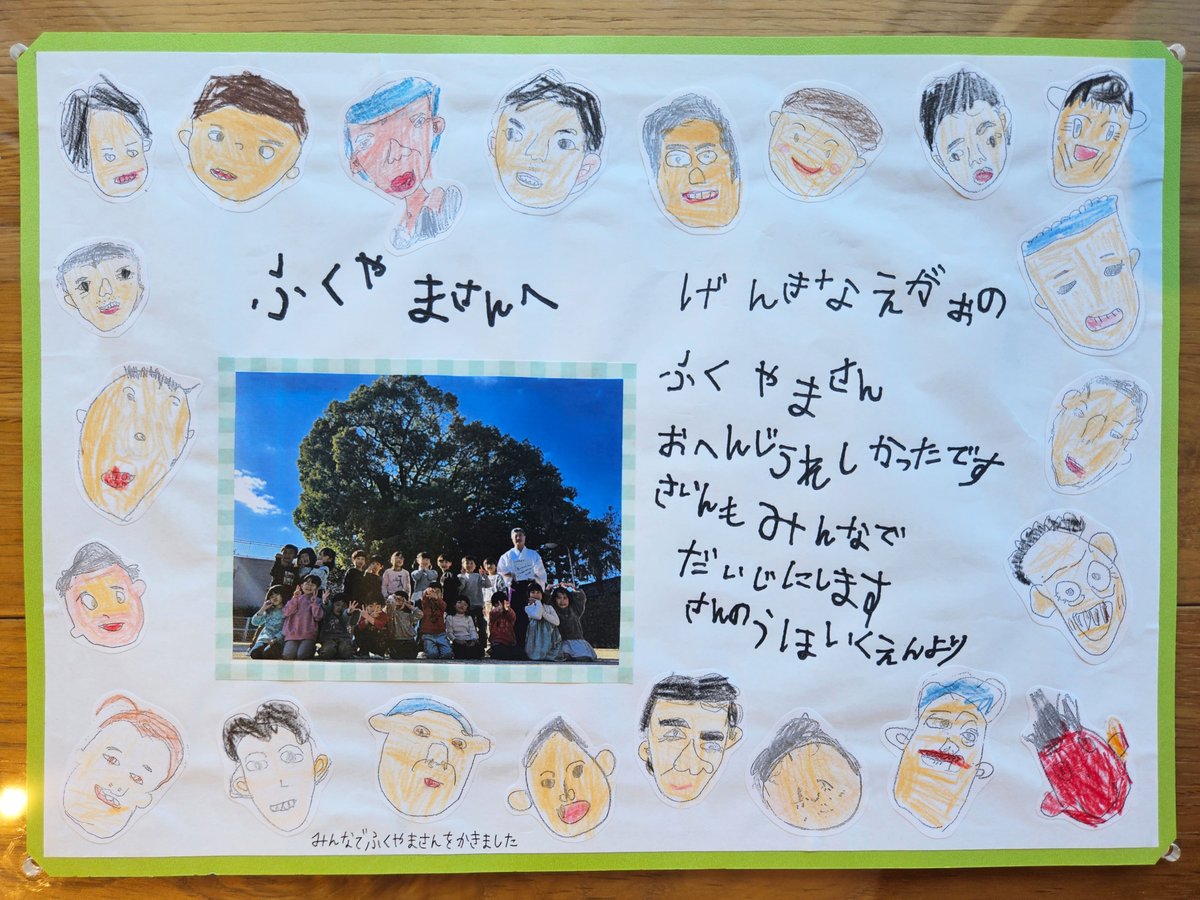 ふくやまさんへ
げんきなえがおの
ふくやまさん
おへんじうれしかったです
さいんもみんなで
だいじにします
さんのうほいくえんより
みんなでふくやまさんをかきました